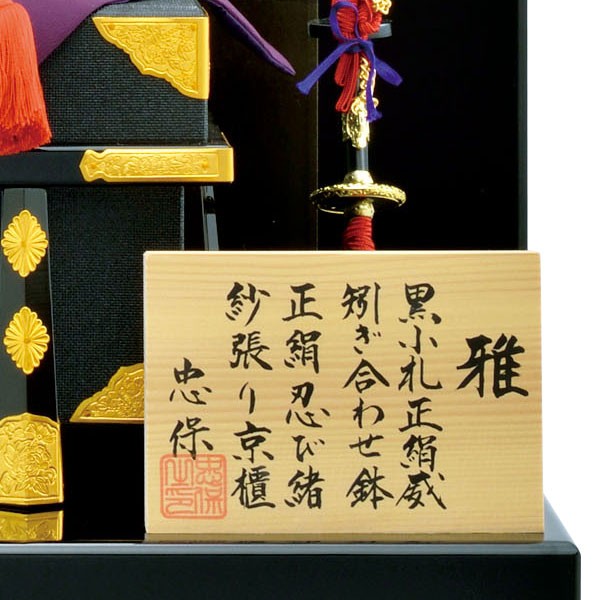 雅
黒小札正絹威
矧ぎ合わせ鉢
正絹忍び緒
紗張り京櫃
忠保
忠保之印